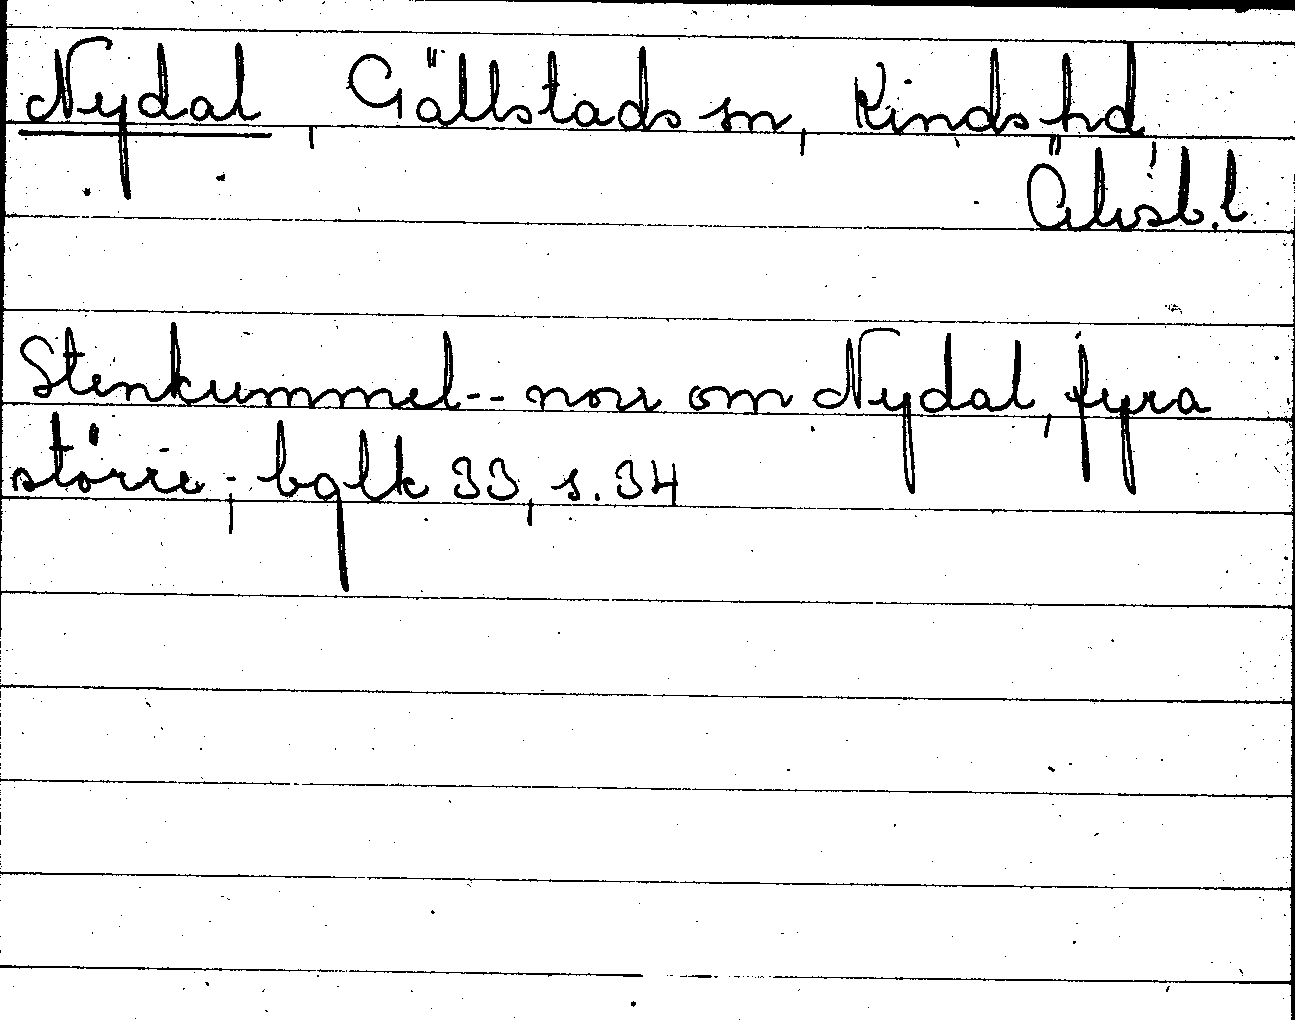 Nydal, Gällstads sn, Kinds hd,
Älvsb. l
Stenkummel-- norr om Nydal, fyra
större; bqlk 33, s. 34